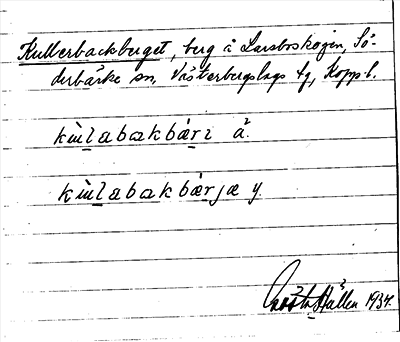 Kullerbackberget, berg å Larsboskogen, Sö-
derbärke sn, Västerbergslags tg, Kopp l.
kùlabakbæ̀rɪ ä.
kùlabakbæ̀rjæ y.
Gösta Hallén 1934.